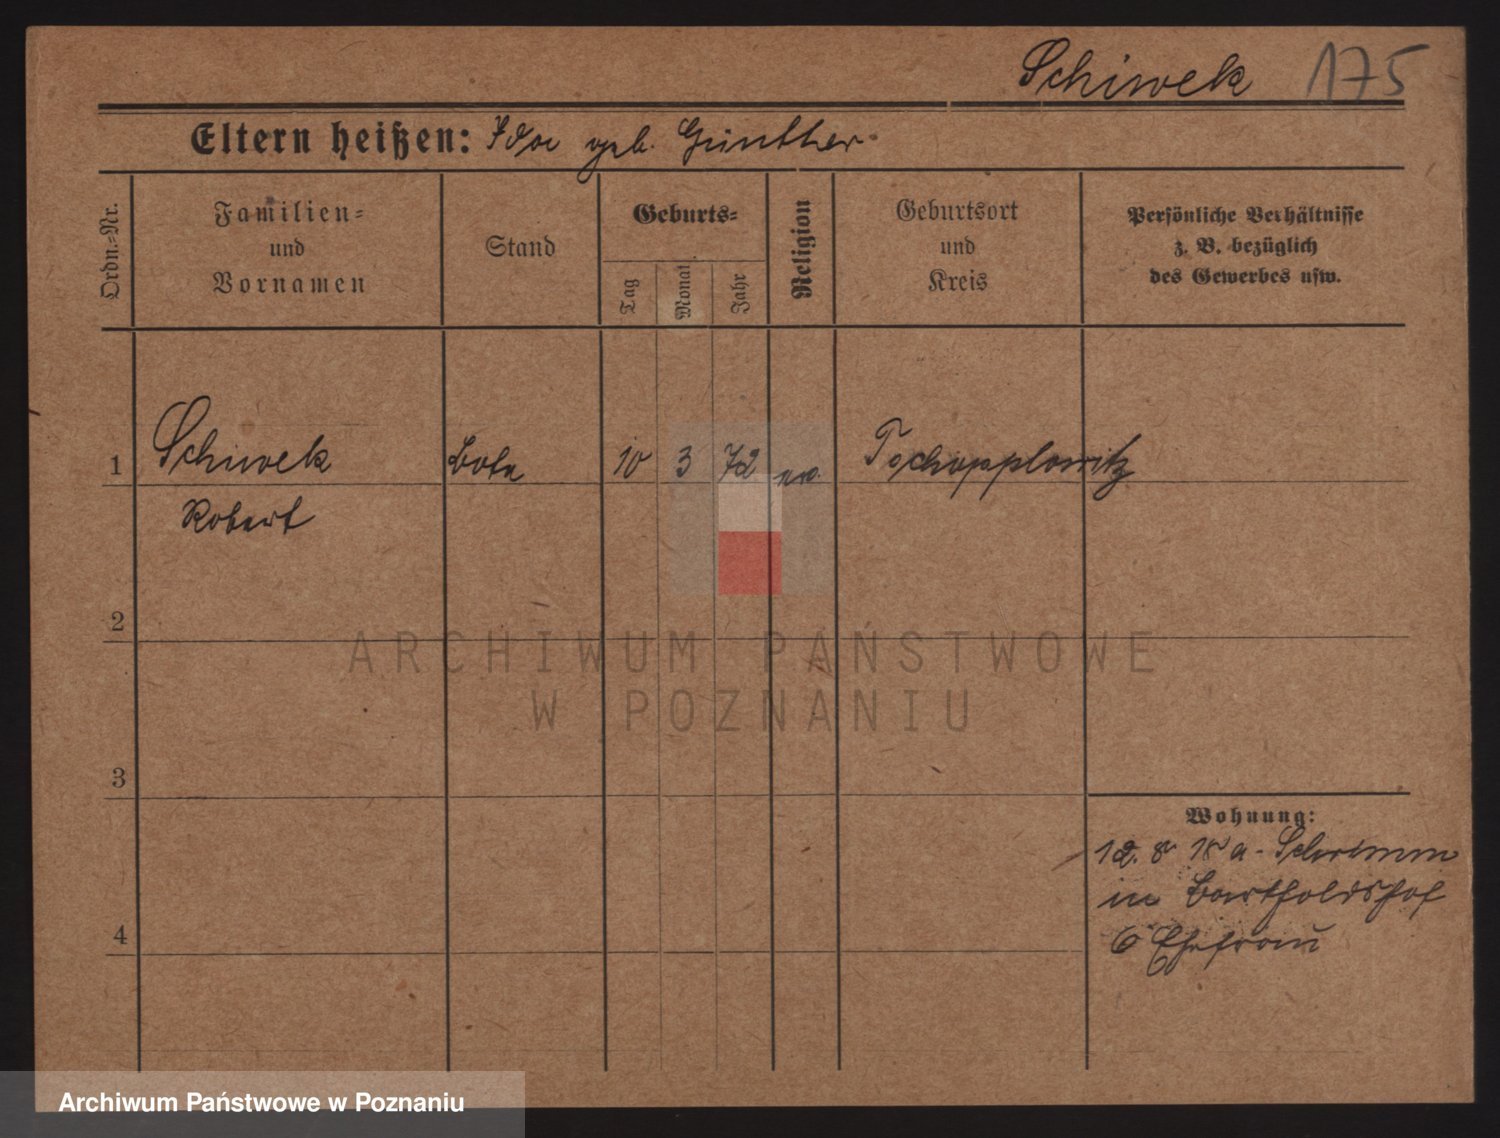 Schiwek 175
Eltern heißen: Ida geb. Günther.
Ordn.-Nr.
Familien-
und
Vornamen
Stand
Geburts-
Tag
Monat
Jahr
Religion
Geburtsort
und
Kreis
Persönliche Verhältnisse
z. B. bezüglich
des Gewerbes usw.
1 Schiwek Bote 10 3 72 ev. Tschopplowitz
Robert
2
ARCHIWUM PAŃSTWOWE
W POZNANIU
3
Wohnung:
12. 8 18 a. Schrimm
in Bartholdshof
6 Ehefrau
4
Archiwum Państwowe w Poznaniu